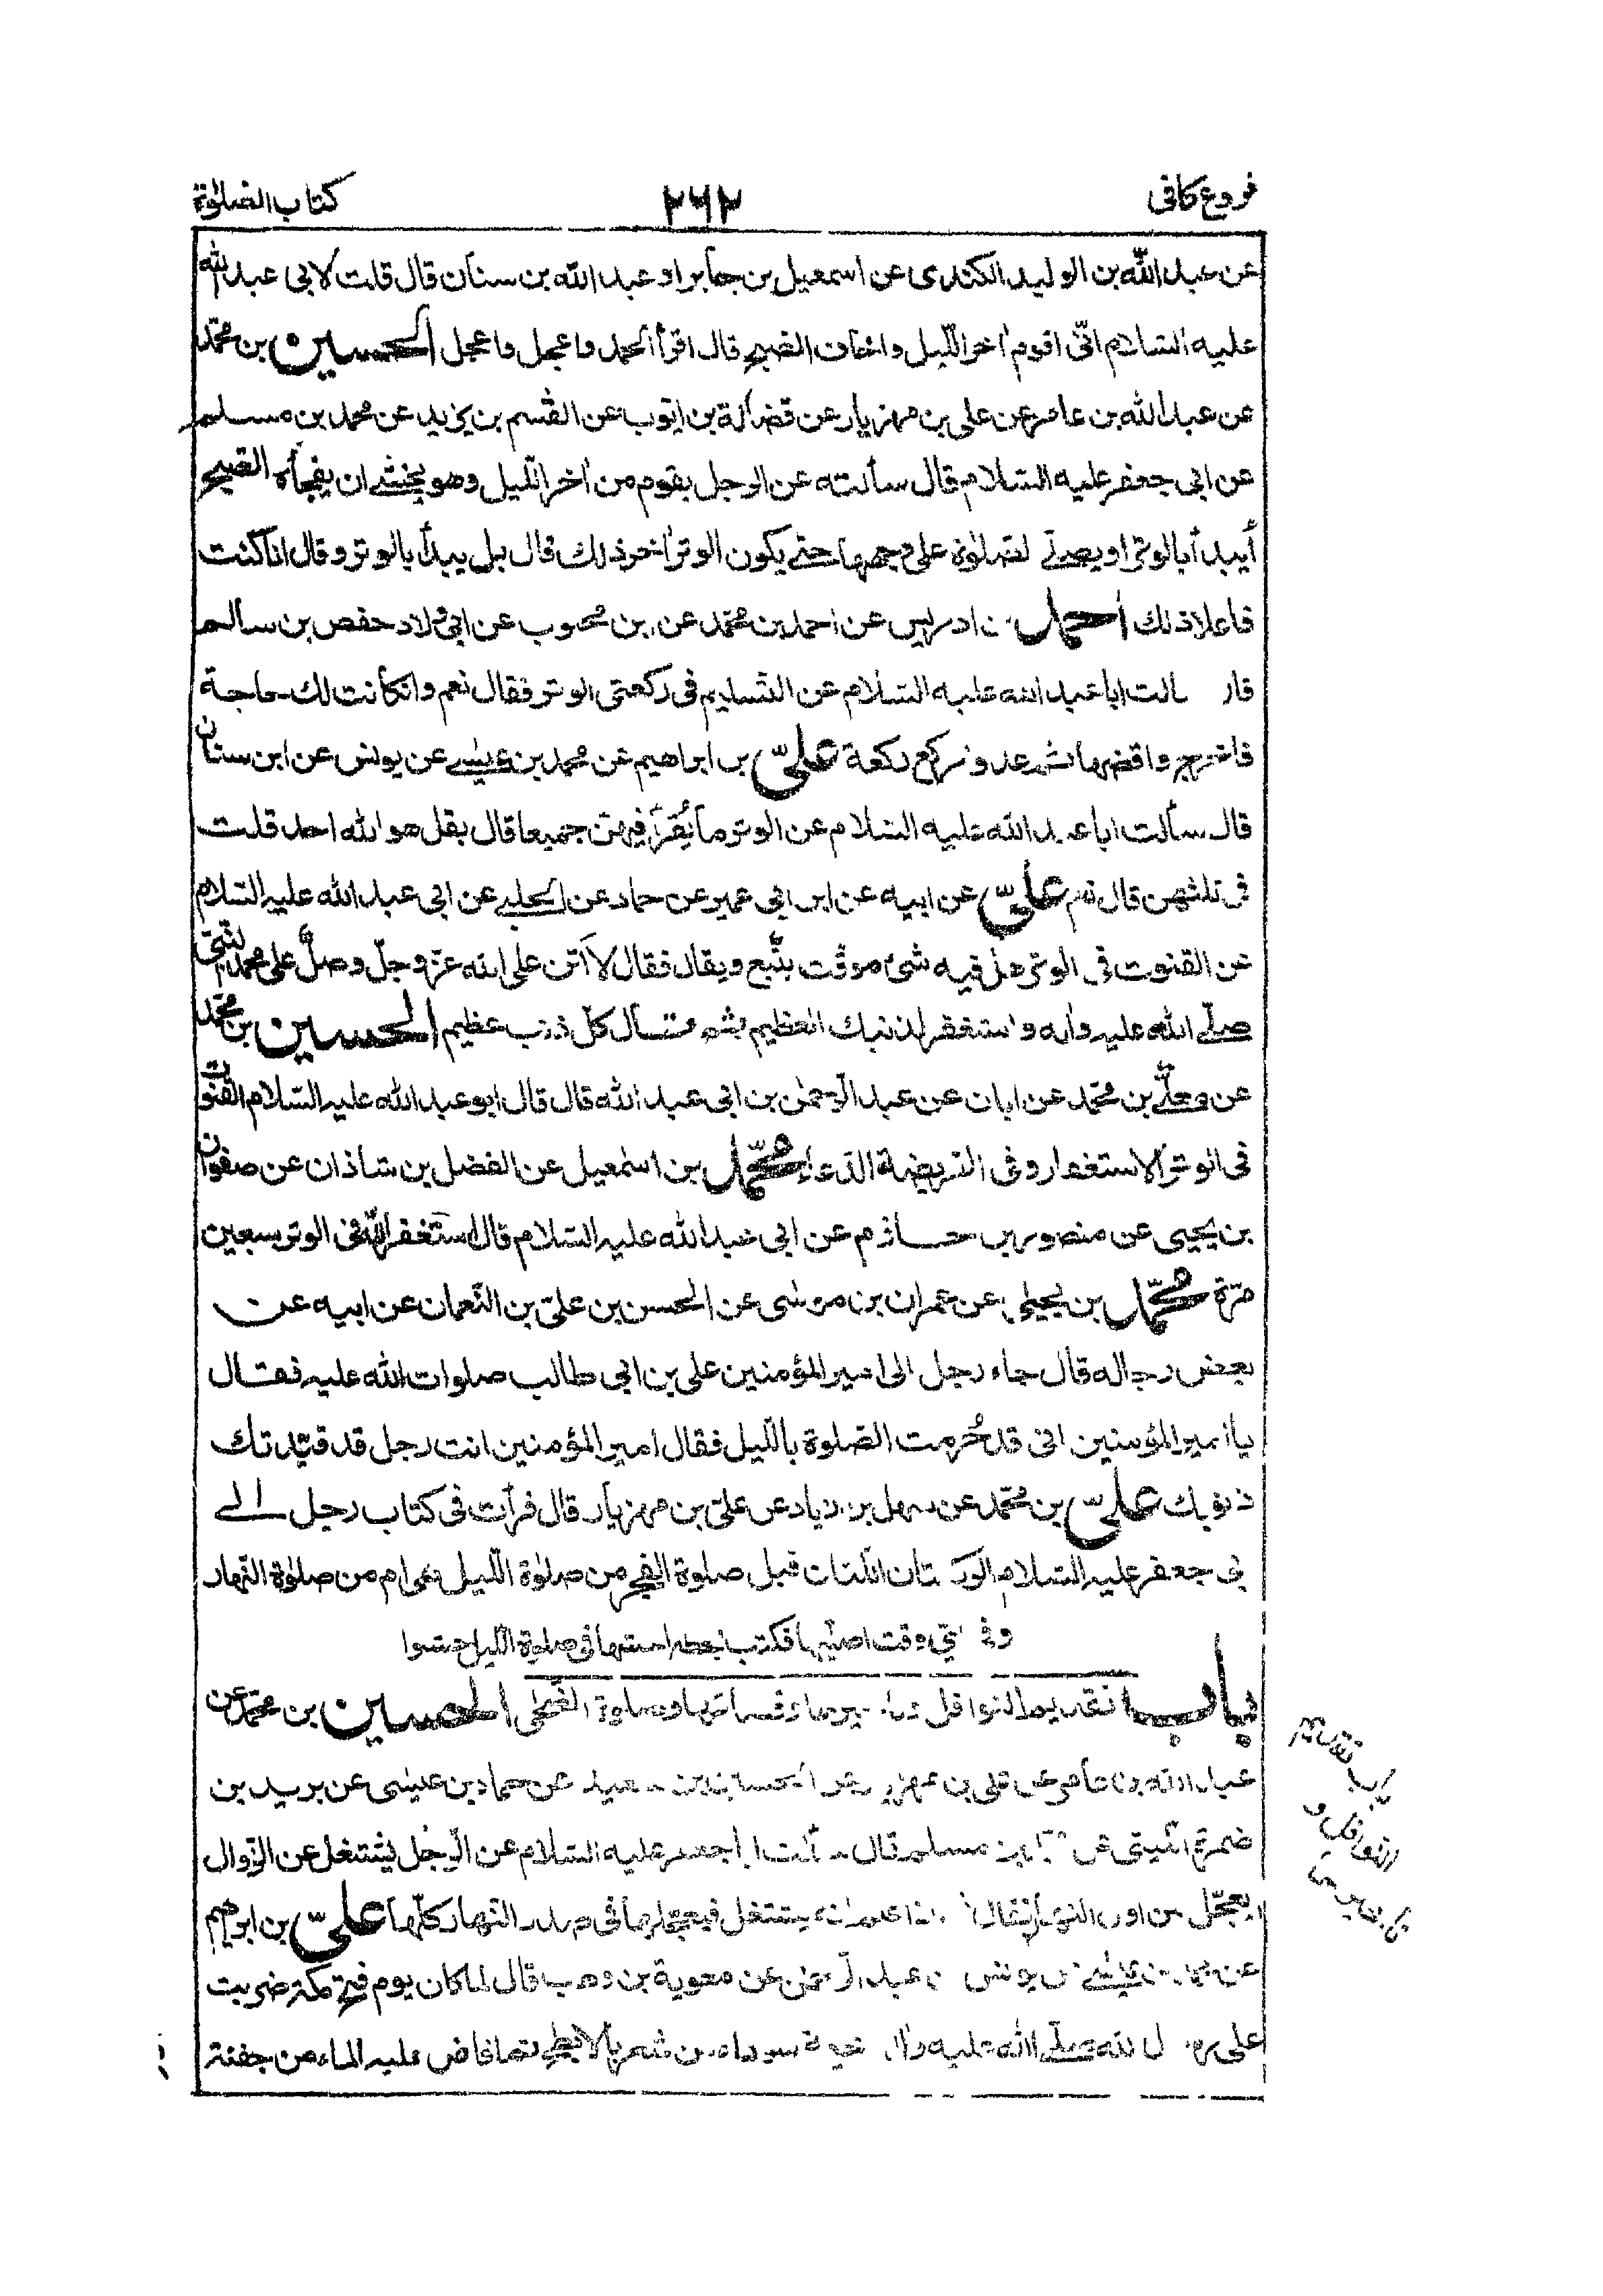 فروع كافى ٢٦٢ كتاب الصلوٰة
عن عبد الله بن الوليد الكندى عن اسمعيل بن جابر او عبد الله بن سنان قال قلت لابى عبد الله
عليه السلام انّى اقوم اخر اللّيل واخاف الصبح قال اقرأ الحمد واعجل واعجل الحسين بن محمّد
عن عبد الله بن عامر عن على بن مهزيار عن فضالة بن ايّوب عن القٰسم بن يزيد عن محمد بن مسلم
عن ابى جعفر عليه السّلام قال سألته عن الرجل يقوم من اٰخر اللّيل وهو يخشى ان يفجأه الصبح
أيبدأ بالوتر او يصلّى الصلوٰة على وجهها حتى يكون الوتر اٰخر ذلك قال بل يبدأ بالوتر وقال انا كنت
فاعلا ذلك احمد بن ادريس عن احمد بن محمّد عن ابن محبوب عن ابى ولّاد حفص بن سالم
قال سألت ابا عبد الله عليه السّلام عن التّسليم فى ركعتى الوتر فقال نعم وان كانت لك حاجة
فاخرج واقضها ثم عد واركع ركعة علىّ بن ابراهيم عن محمد بن عيسٰى عن يونس عن ابن سنان
قال سألت ابا عبد الله عليه السّلام عن الوتر ما يُقرأ فيهنّ جميعا قال بقل هو الله احد قلت
فى ثلثهن قال نعم علىّ عن ابيه عن ابن ابى عمير عن حماد عن الحلبى عن ابى عبد الله عليه السّلام
عن القنوت فى الوتر هل فيه شئ موقّت يتّبع ويقال فقال لا اثن على الله عزّ وجلّ وصلّ على محمد النّبىّ
صلّى الله عليه واٰله واستغفر لذنبك العظيم ثم قال كلّ ذنب عظيم الحسين بن محمّد
عن معلّى بن محمّد عن ابان عن عبد الرّحمٰن بن ابى عبد الله قال قال ابو عبد الله عليه السّلام القنوت
فى الوتر الاستغفار وفى الفريضة الدّعاء محمّد بن اسمٰعيل عن الفضل بن شاذان عن صفوان
بن يحيى عن منصور بن حازم عن ابى عبد الله عليه السّلام قال استغفر الله فى الوتر سبعين
مرّة محمّد بن يحيٰى عن عمران بن موسٰى عن الحسن بن علىّ بن النّعمان عن ابيه عن
بعض رجاله قال جاء رجل الى امير المؤمنين على بن ابى طالب صلوات الله عليه فقال
يا امير المؤمنين انى قد حُرمت الصّلوة باللّيل فقال امير المؤمنين انت رجل قد قيّدتك
ذنوبك علىّ بن محمّد عن سهل بن زياد عن علىّ بن مهزيار قال قرأت فى كتاب رجل الى
ابى جعفر عليه السّلام الركعتان اللّتان قبل صلوة الفجر من صلوٰة اللّيل هى ام من صلوٰة النّهار
وفى اىّ وقت اصلّيها فكتب بخطه احشها فى صلوة اللّيل حشوا
باب تقديم النوافل وتاخيرها وقضائها وصلوة الضّحٰى الحسين بن محمّد عن
عبد الله بن عامر عن على بن مهزيار عن الحسين بن سعيد عن حماد بن عيسٰى عن بريد بن
ضمرة الليثى عن محمد بن مسلم قال سألت ابا جعفر عليه السّلام عن الرّجل يشتغل عن الزّوال
ايعجّل من اول النهار فقال اذا علم انه يشتغل فيعجّلها فى صدر النّهار كلّها علىّ بن ابراهيم
عن محمد بن عيسٰى عن يونس بن عبد الرّحمٰن عن معوية بن وهب قال لمّا كان يوم فتح مكّة ضربت
على رسول الله صلّى الله عليه واٰله خيمة سوداء من شعر بالابطح ثم افاض عليه الماء من جفنة
باب تقديم
النوافل و
تاخيرها